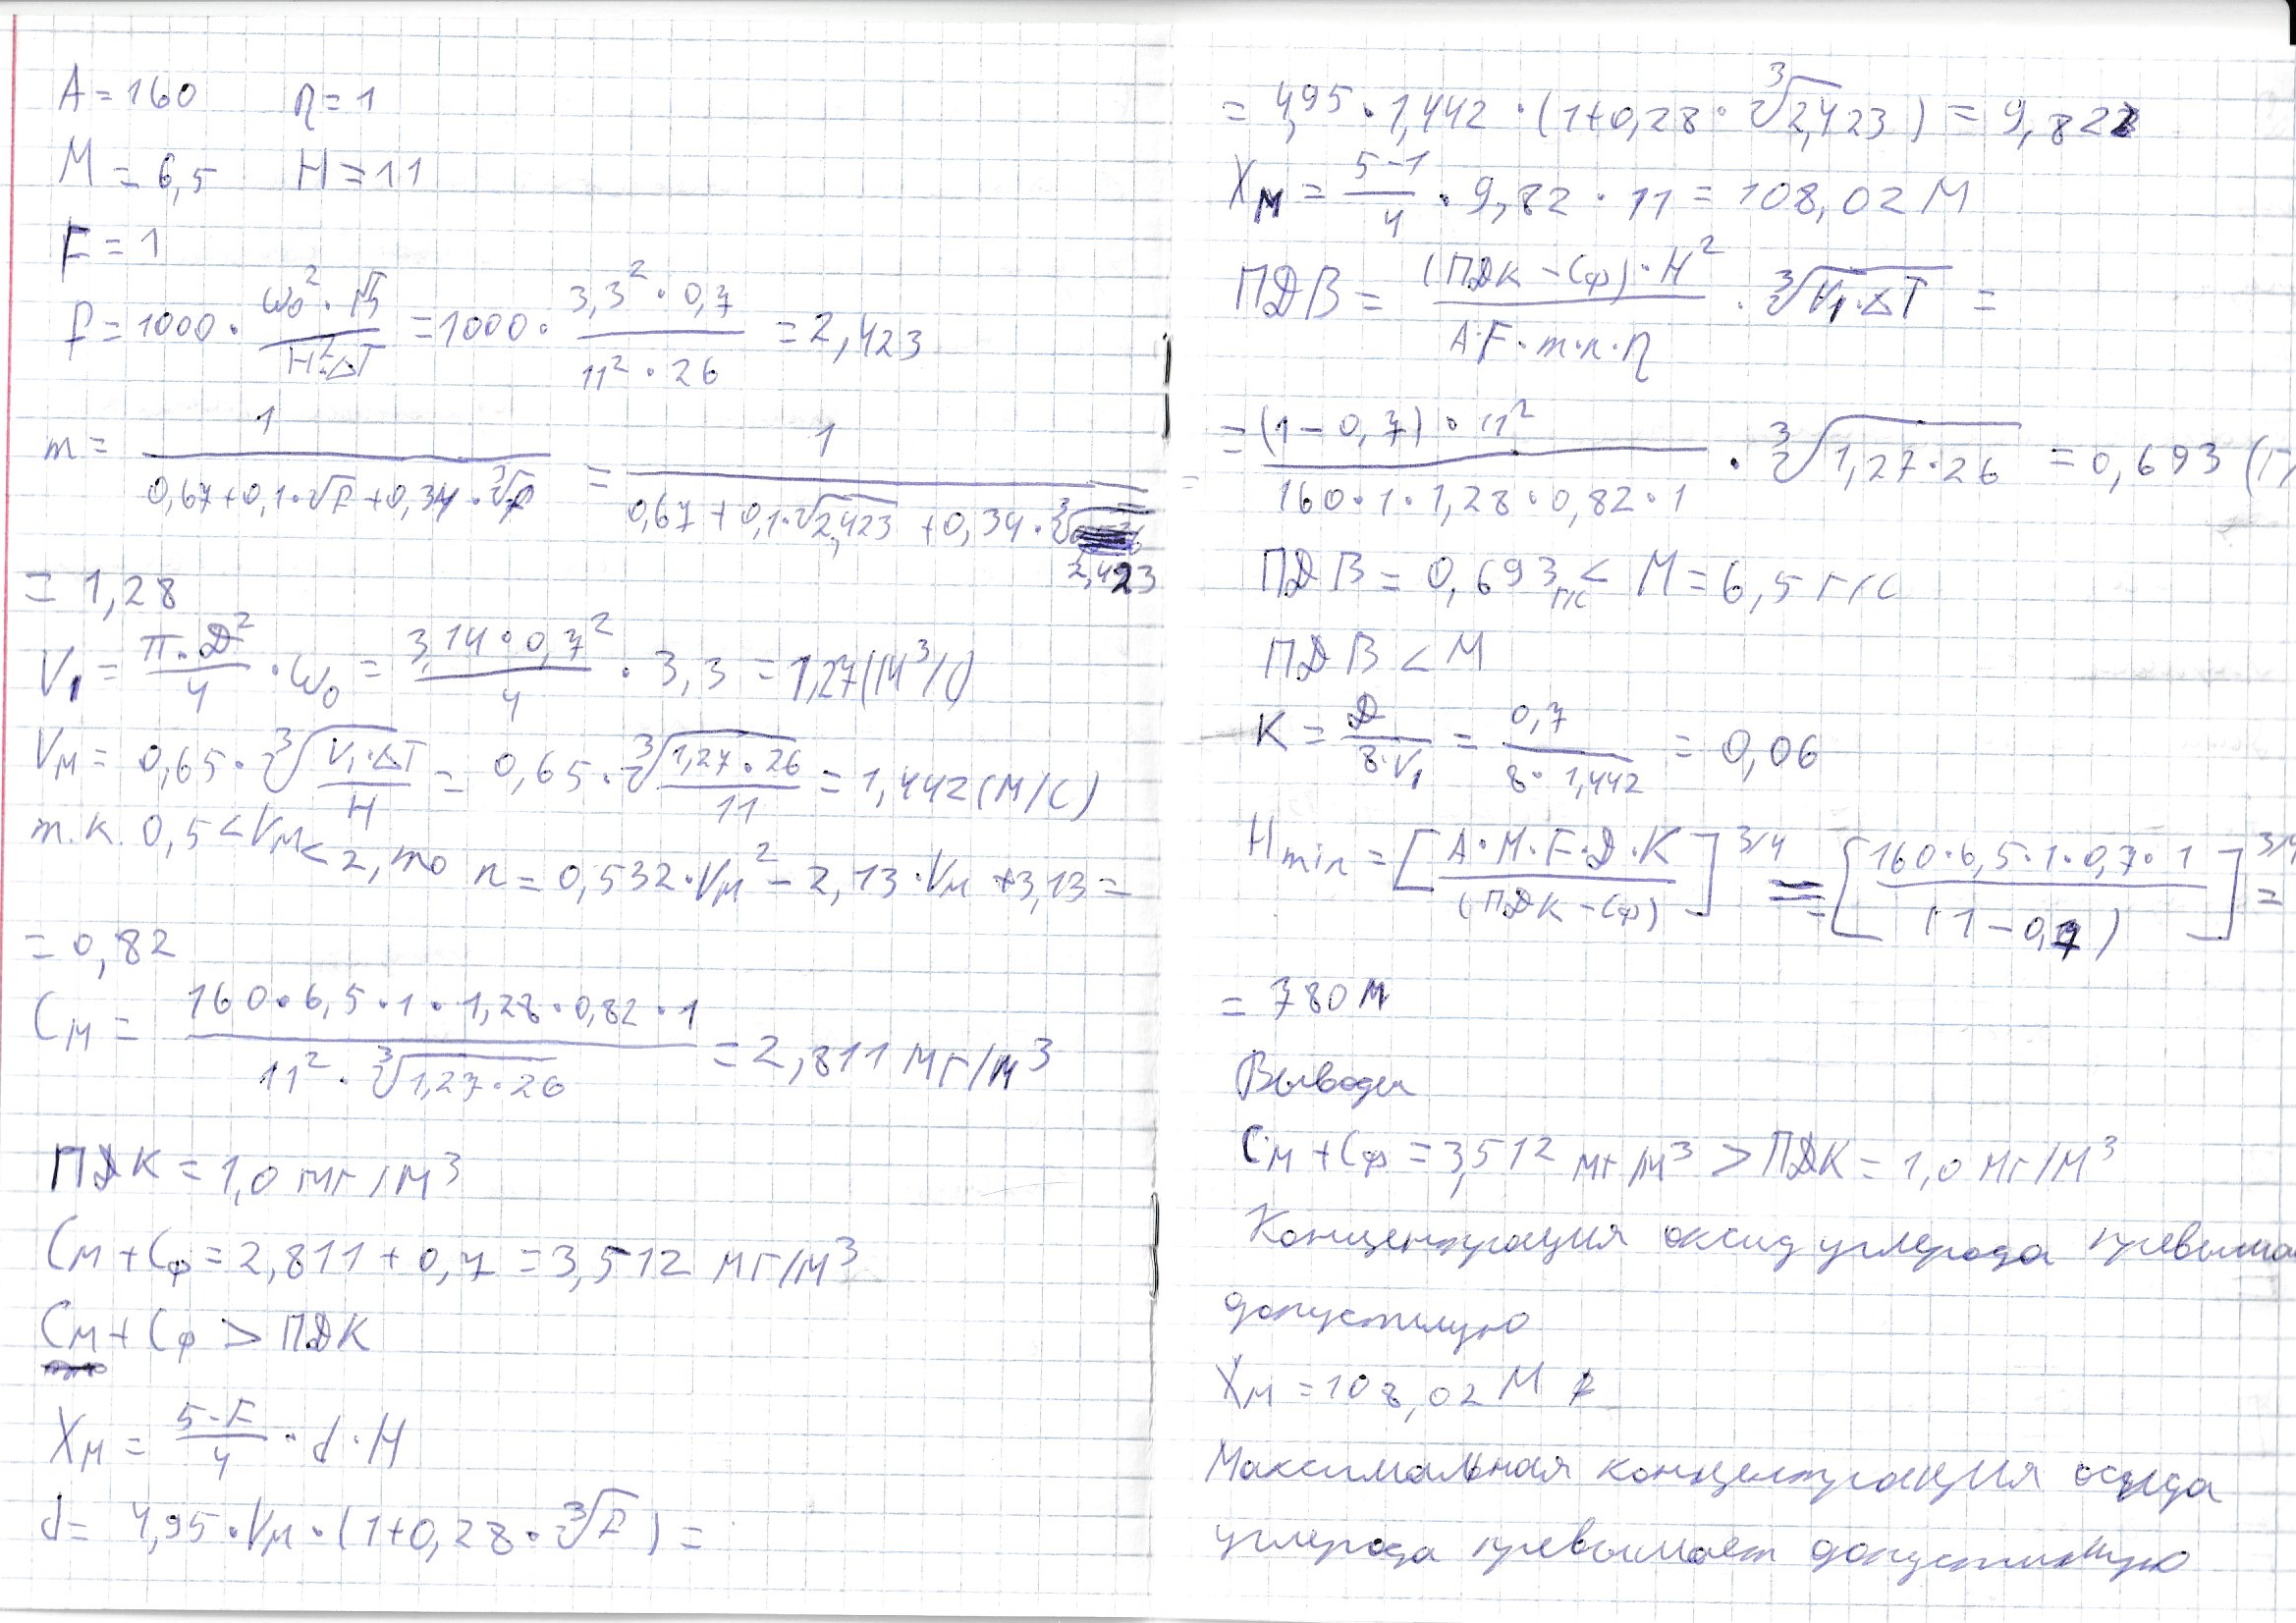 A = 160 η = 1
M = 6,5 H = 11
F = 1
f = 1000 · ω₀² · Д / H² · ΔT = 1000 · 3,3² · 0,7 / 11² · 26 = 2,423
m = 1 / 0,67 + 0,1 · √f + 0,34 · ∛f = 1 / 0,67 + 0,1 · √2,423 + 0,34 · ∛2,423
= 1,28
V₁ = π · Д² / 4 · ω₀ = 3,14 · 0,7² / 4 · 3,3 = 1,27 (м³/с)
Vм = 0,65 · ∛(V₁ · ΔT / H) = 0,65 · ∛(1,27 · 26 / 11) = 1,442 (м/с)
т.к. 0,5 < Vм < 2, то n = 0,532 · Vм² – 2,13 · Vм + 3,13 =
= 0,82
Cм = 160 · 6,5 · 1 · 1,28 · 0,82 · 1 / 11² · ∛(1,27 · 26) = 2,811 мг/м³
ПДК = 1,0 мг/м³
Cм + Cф = 2,811 + 0,7 = 3,512 мг/м³
Cм + Cф > ПДК
Xм = 5 - F / 4 · d · H
d = 4,95 · Vм · (1 + 0,28 · ∛f) =
= 4,95 · 1,442 · (1 + 0,28 · ∛2,423) = 9,822
Xм = 5 - 1 / 4 · 9,82 · 11 = 108,02 м
ПДВ = (ПДК – Cф) · H² / A · F · m · n · η · ∛(V₁ · ΔT) =
= (1 – 0,7) · 11² / 160 · 1 · 1,28 · 0,82 · 1 · ∛(1,27 · 26) = 0,693 (г/
ПДВ = 0,693 г/с < M = 6,5 г/с
ПДВ < M
K = Д / 8 · V₁ = 0,7 / 8 · 1,442 = 0,06
Hmin = [A · M · F · Д · K / (ПДК – Cф)]^3/4 = [160 · 6,5 · 1 · 0,7 · 1 / (1 – 0,7)]^3/4 =
= 780 м
Выводы
Cм + Cф = 3,512 мг/м³ > ПДК = 1,0 мг/м³
Концентрация оксид углерода превыша
допустимую
Xм = 108,02 м
Максимальная концентрация осида
углерода превышает допустимую